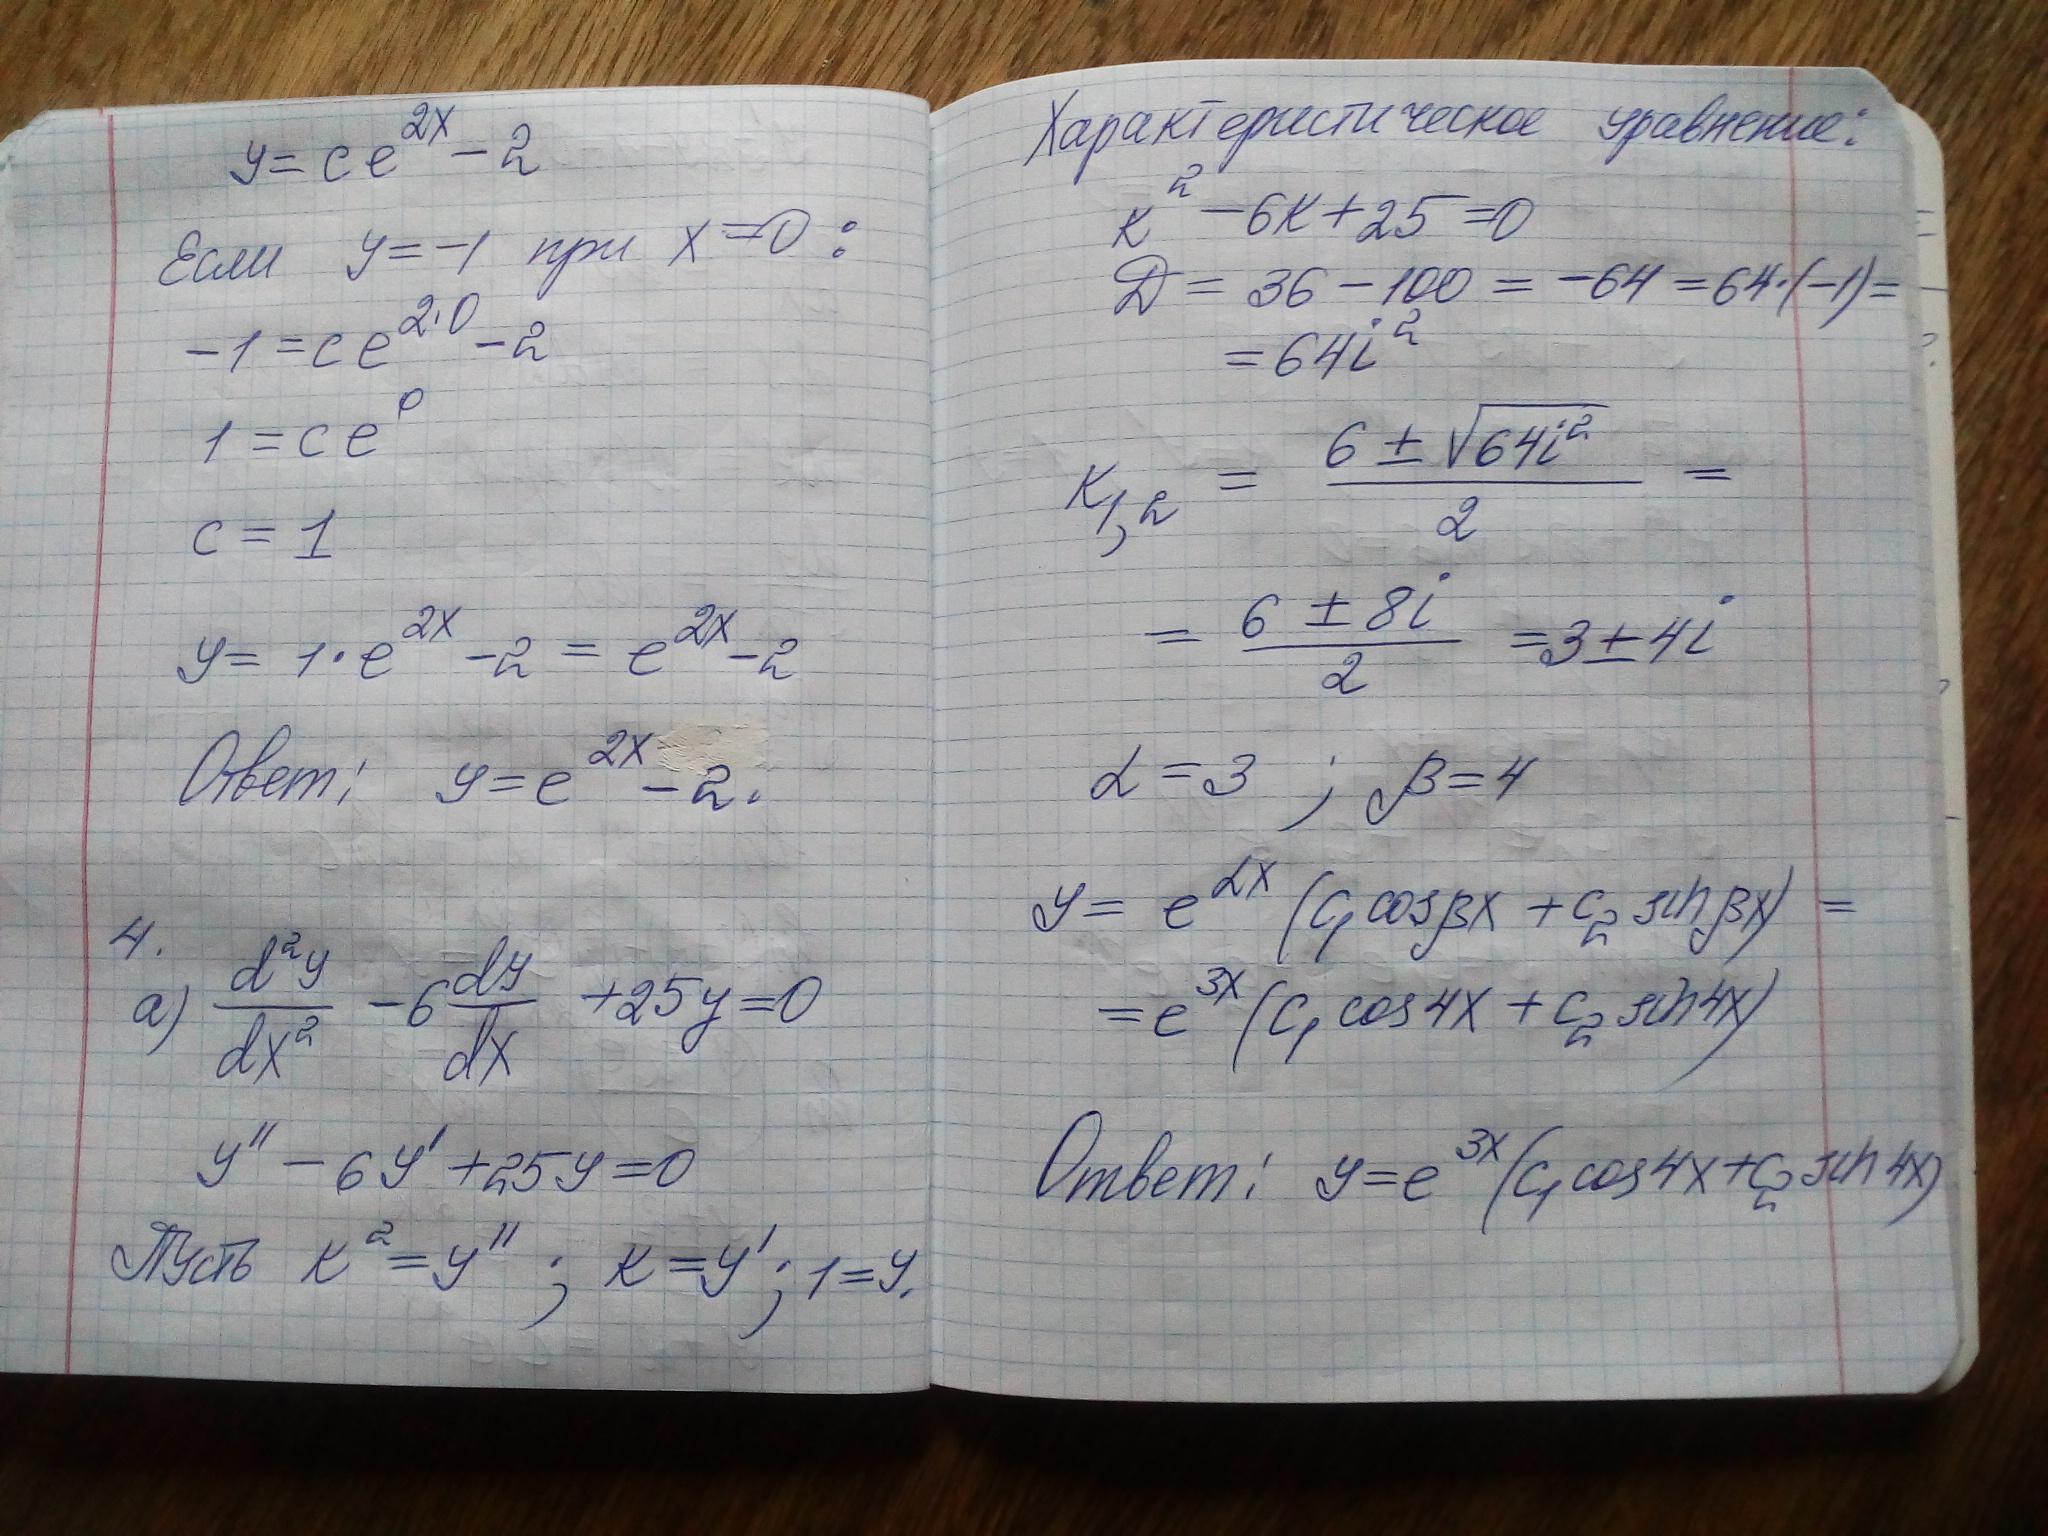 y = ce^{2x} - 2
Если y = -1 при x = 0 :
-1 = ce^{2·0} - 2
1 = ce^0
c = 1
y = 1·e^{2x} - 2 = e^{2x} - 2
Ответ: y = e^{2x} - 2.
4.
а) \frac{d^2y}{dx^2} - 6\frac{dy}{dx} + 25y = 0
y'' - 6y' + 25y = 0
Пусть к^2 = y'' ; к = y' ; 1 = y.
Характеристическое уравнение:
к^2 - 6к + 25 = 0
Д = 36 - 100 = -64 = 64·(-1) =
= 64i^2
к_{1,2} = \frac{6 ± \sqrt{64i^2}}{2} =
= \frac{6 ± 8i}{2} = 3 ± 4i
α = 3 ; β = 4
y = e^{αx} (c_1 cosβx + c_2 sinβx) =
= e^{3x} (c_1 cos4x + c_2 sin4x)
Ответ: y = e^{3x} (c_1 cos4x + c_2 sin4x)